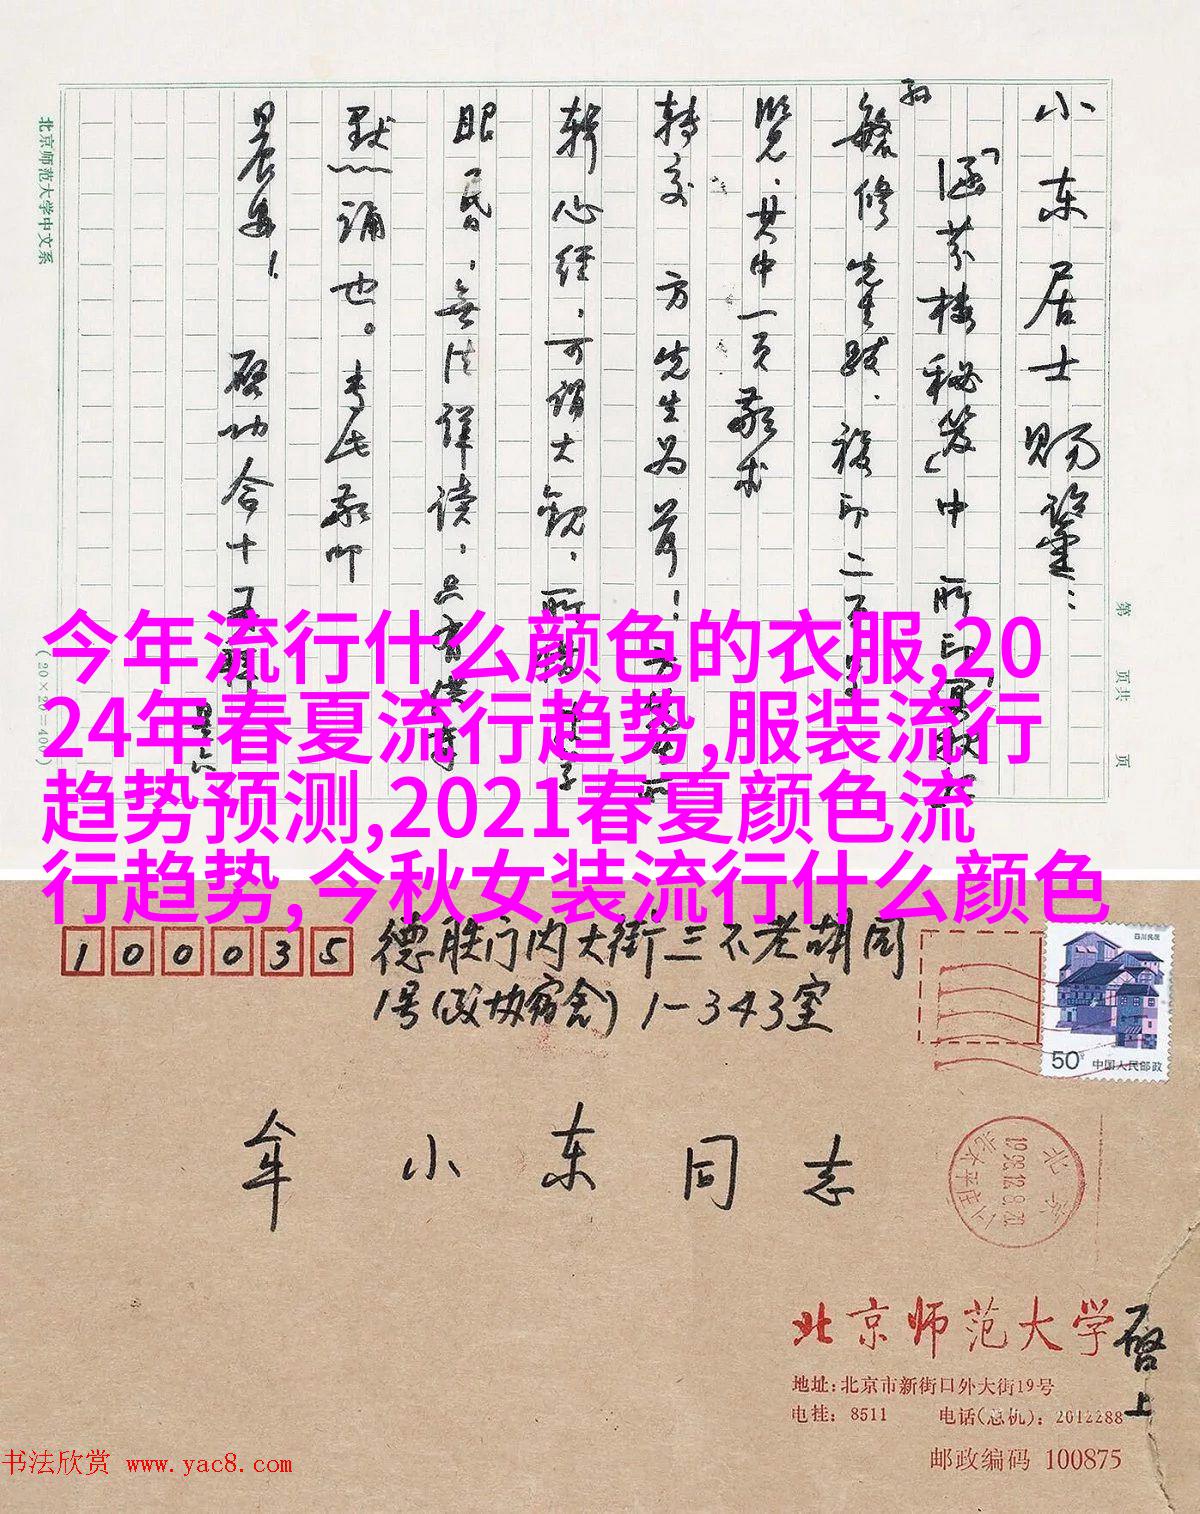 小东居士赐鉴：
「涵芬楼秘笈」中所印
孙
繁修先生跋，複印二
览，其中一页敬求
转交 方先生为荷！
辑心经，可谓大觀，所
眼昏，無法详读，只有
默诵也。专此敬叩
晨安！ 启功 合十
北京师范大学中文系
(20×20=400)
第 页共 页
今年流行什么颜色的衣服,20
24年春夏流行趋势,服装流行
趋势预测,2021春夏颜色流
行趋势,今秋女装流行什么颜色
100035
德胜门内大街三不老胡同
1号(政协宿舍) 1-343室
四川民居
50分
中国人民邮政
牟小东同志
北京
北京师范大学
启上
地址:北京市新街口外大街19号
电挂: 8511 电话(总机): 2012288
邮政编码 100875
书法欣赏 www.yac8.com